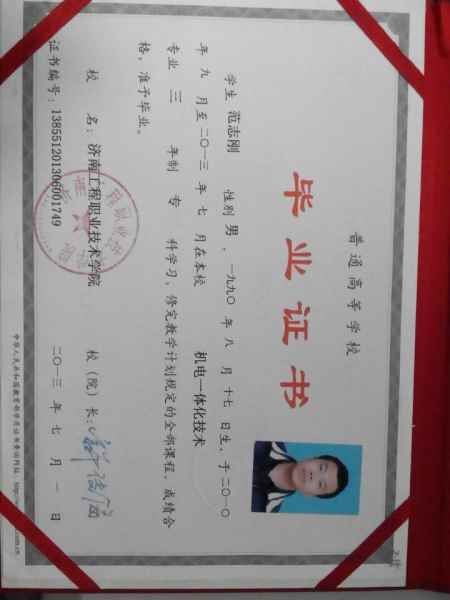 普通高等学校
毕业证书
学生 范志刚 性别 男，一九九〇年 八 月 十七 日生，于二〇一〇
年 九 月至二〇一三 年 七 月在本校 机电一体化技术
专业 三 年制 专 科学习，修完教学计划规定的全部课程，成绩合
格，准予毕业。
校 名：济南工程职业技术学院 校（院）长：
证书编号：138551201306001749 二〇一三 年 七 月 一 日
中华人民共和国教育部学历证书查询网址：http://